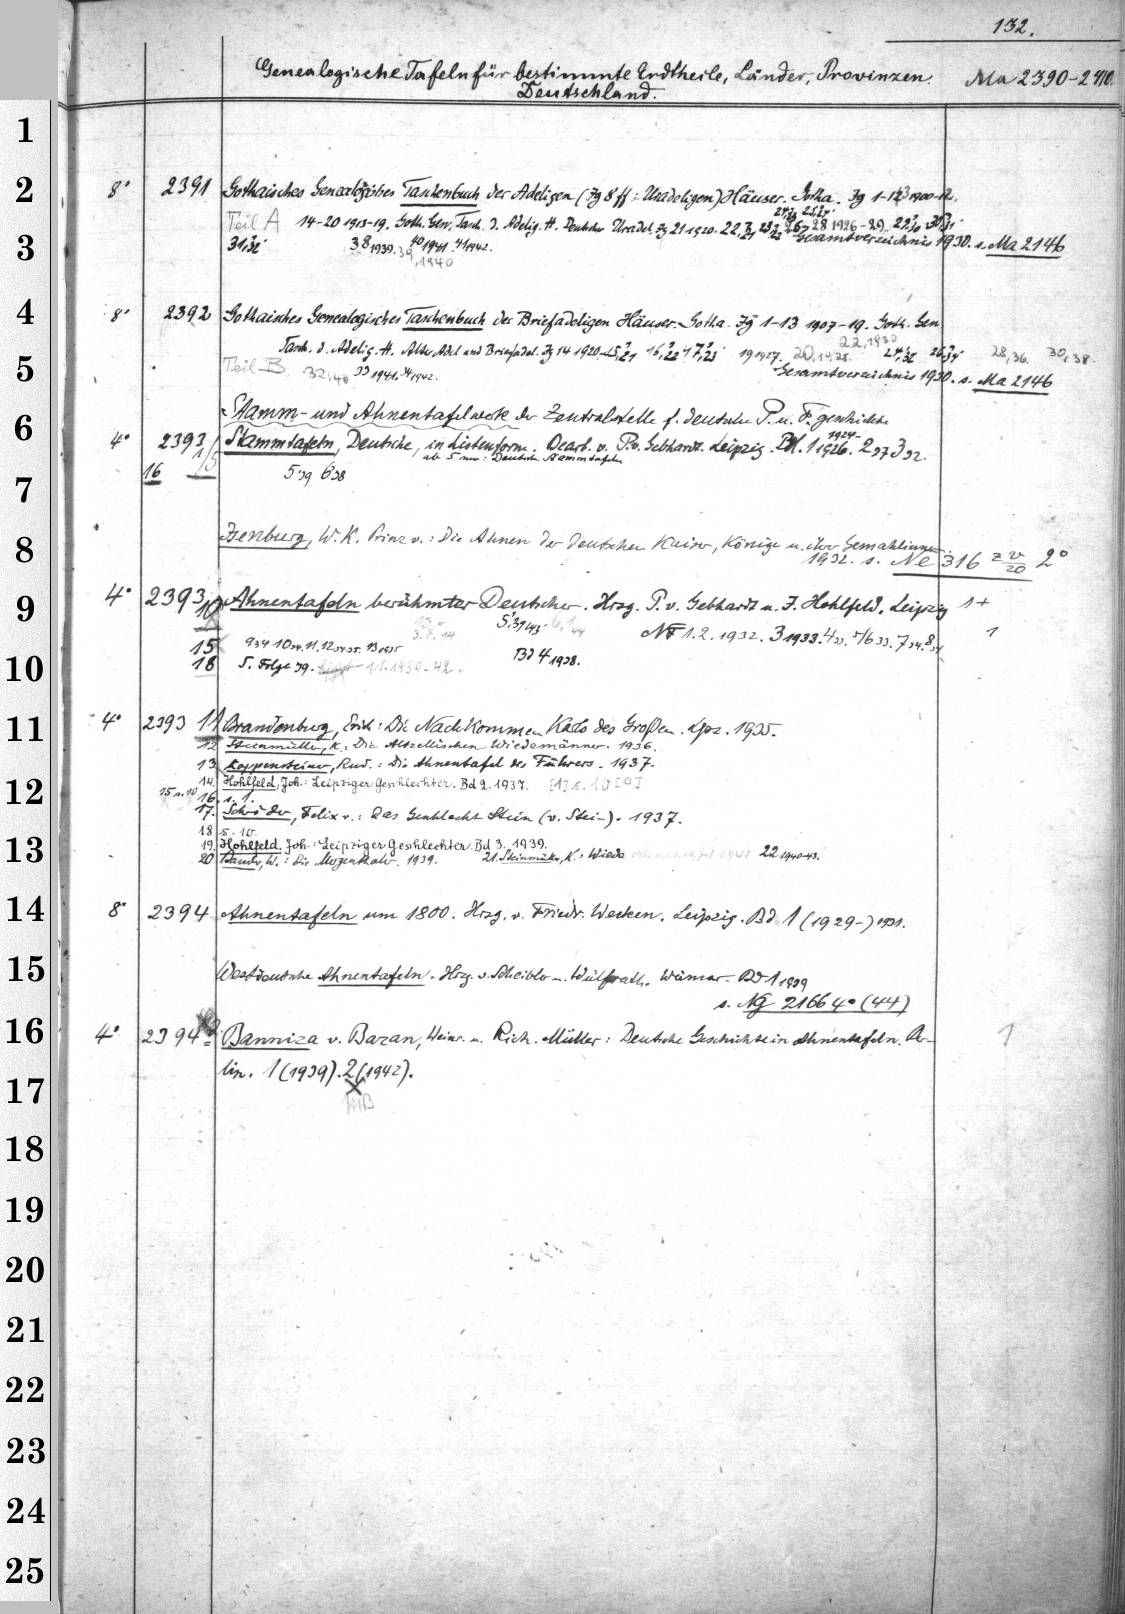 132.
Genealogische Tafeln für bestimmte Erdtheile, Länder, Provinzen. Ma 2390-2410.
Deutschland.
1
2 8° 2391 Gothaisches Genealogisches Taschenbuch der Adeligen (Jg 8 ff: Uradeligen) Häuser. Gotha. Jg 1-13 1900-12.
Teil A 14-20 1913-19. Goth. Gen. Tasch. d. Adelig. H. Deutscher Uradel. Jg 21 1920. 28 1926-29.
3 31,32 38 1939. 40 1941. 41 1942. Gesamtverzeichnis 1930. s. Ma 2146
39, 1940
4 8° 2392 Gothaisches Genealogisches Taschenbuch der Briefadeligen Häuser. Gotha. Jg 1-13 1907-19. Goth. Gen.
22, 1930
Tasch. d. Adelig. H. Alter Adel und Briefadel. Jg 14 1920. 19 1927. 20, 1928. 28, 36. 30, 38.
5 Teil B. 32, 40 33 1941. 34 1942. Gesamtverzeichnis 1930. s. Ma 2146
Stamm- und Ahnentafelwerk der Zentralstelle f. deutsche P. u. F. geschichte
6 4° 2393/15 Stammtafeln, Deutsche, in Listenform. Bearb. v. P. v. Gebhardt. Leipzig. Bd. 1 1924-1926. 2 27 3 32.
16 ab 5 nur: Deutsche Stammtafeln
7 5 39 6 38
Isenburg, W. K. Prinz v.: Die Ahnen der deutschen Kaiser, Könige u. ihrer Gemahlinnen.
8 1932. s. Ne 316 zv/20 2°
9 4° 2393/10 Ahnentafeln berühmter Deutscher. Hrsg. P. v. Gebhardt u. J. Hohlfeld. Leipzig 1+
NF 1. 2. 1932. 3 1933. 1
15 9 34 10 34. 11, 12 34 35. 13 1935
10 18 5. Folge 39. 11. 1930-42. Bd 4 1938.
11 4° 2393 11 Brandenburg, Erich: Die Nachkommen Karls des Großen. Lpz. 1935.
12 Steinmüller, K.: Die Altzellischen Wiedemänner. 1936.
13 Koppensteiner, Rud.: Die Ahnentafel des Führers. 1937.
12 14. Hohlfeld, Joh.: Leipziger Geschlechter. Bd 2. 1937.
15 s. 10 16. s. 1.
17. Schröder, Felix v.: Das Geschlecht Stein (v. Stein). 1937.
18 s. 10.
13 19. Hohlfeld, Joh.: Leipziger Geschlechter. Bd 3. 1939.
20 W.: Die Merzenkale. 1939. 21. Steinmüller, K.: Wiede 22 1940-43.
14 8° 2394 Ahnentafeln um 1800. Hrsg. v. Friedr. Wecken. Leipzig. Bd 1 (1929-) 1931.
15 Westdeutsche Ahnentafeln. Hrg. v. Scheibler u. Wülfrath. Weimar. Bd 1 1939
s. Ng 2166 4° (44)
16 4° 2394 Banniza v. Bazan, Heinr. u. Rich. Müller: Deutsche Geschichte in Ahnentafeln. Ber- 1
17 lin. 1 (1939). 2 (1942).
18
19
20
21
22
23
24
25